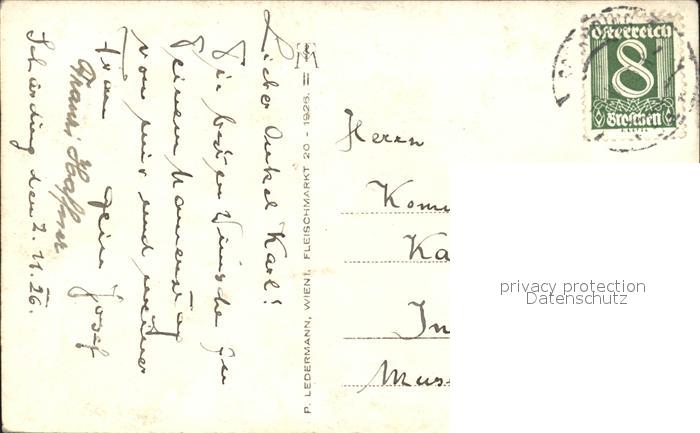 Lieber Onkel Karl!
Die besten Wünsche zu
Deinem Namenstag
von mir und meiner
Frau Dein Josef
Franzi Haffner
Schärding den 2. 11. 26.
P. LEDERMANN, WIEN I, FLEISCHMARKT 20 - 1926.
Österreich
8
Groschen
Herrn
Kom
Ka
In
Mus
privacy protection
Datenschutz